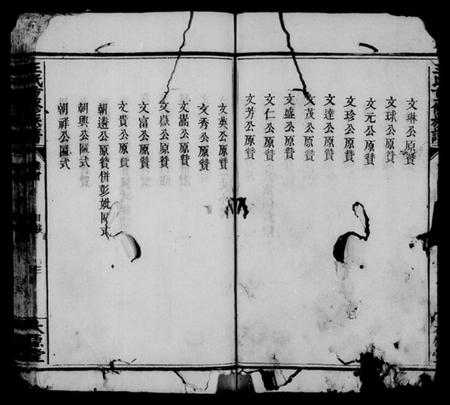 文琳公原贊
文球公原贊
文元公原贊
文珍公原贊
文達公原贊
文茂公原贊
文盛公原贊
文仁公原贊
文芳公原贊
文英公原贊
文秀公原贊
文嵩公原贊
文嶽公原贊
文富公原贊
文貴公原贊
朝遠公原贊併彭妣區式
朝興公區式
朝祥公區式